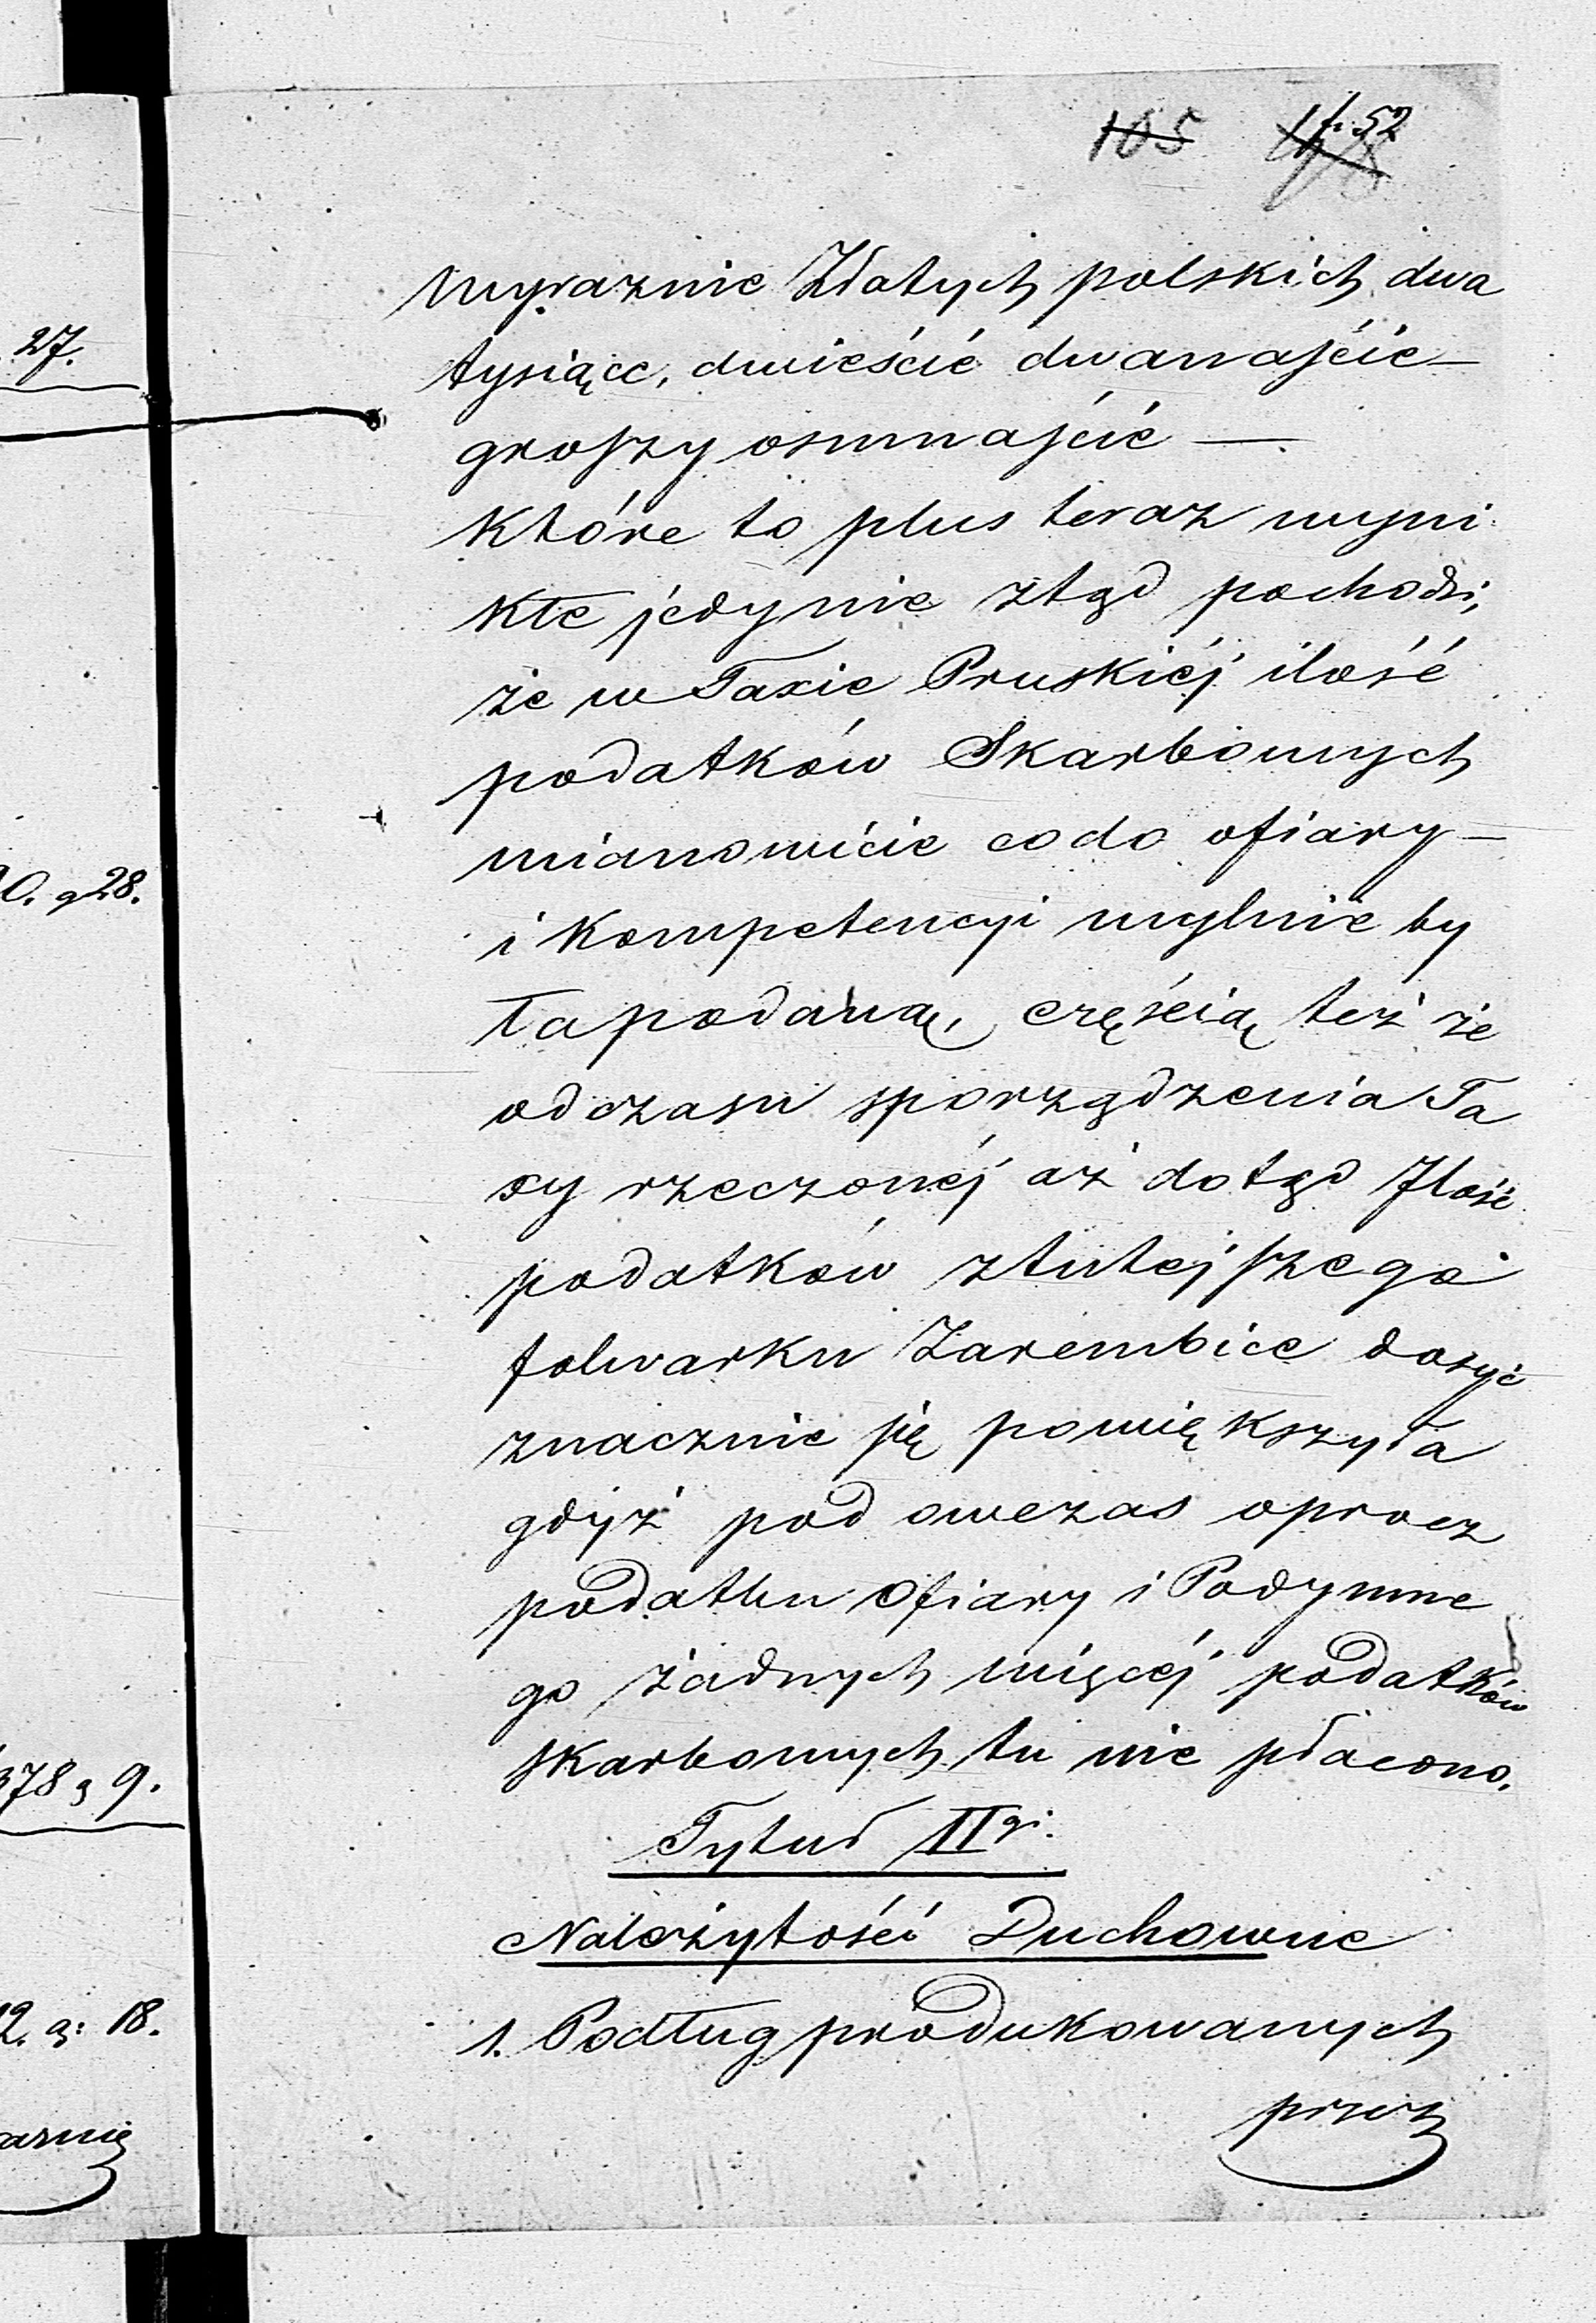 105 fr. 52
27.
0. g 28.
378 g 9.
12. g: 18.
wyraznie Złotych polskich dwa
tysiące, dwieście dwanaście —
groszy osmnaście — .
które to plus teraz wyni
kłe jedynie ztąd pochodzi,
że w Taxie Pruskiéj ilość
podatków Skarbowych
mianowicie co do ofiary —
i kompetencyi mylnie by
ła podaną, częścią też że
od czasu sporządzenia Ta
xy rzeczonéj aż dotąd Ilość
podatków z tutejszego
folwarku Zarembice dosyć
znacznie się powiększyła
gdyż pod owczas oprocz
podatku Ofiary i Podymne
go żadnych więcéj podatków
skarbowych tu nie płacono.
Tytuł IIgi.
Należytości Duchowne
1. Podług produkowanych
przez